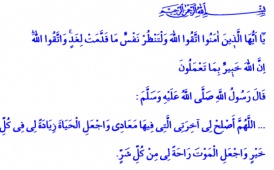 بِسْمِ اللهِ الرَّحْمٰنِ الرَّحِيمِ
يَآ اَيُّهَا الَّذ۪ينَ اٰمَنُوا اتَّقُوا اللّٰهَ وَلْتَنْظُرْ نَفْسٌ مَا قَدَّمَتْ لِغَدٍۚ وَاتَّقُوا اللّٰهَۜ
اِنَّ اللّٰهَ خَب۪يرٌ بِمَا تَعْمَلُونَ
قَالَ رَسُولُ اللّٰهِ صَلَّى اللّٰهُ عَلَيْهِ وَسَلَّمَ:
... اللّٰهُمَّ اَصْلِحْ لِى اٰخِرَتِى الَّتِى فِيهَا مَعَادِى وَاجْعَلِ الْحَيَاةَ زِيَادَةً لِى فِى كُلِّ
خَيْرٍ وَاجْعَلِ الْمَوْتَ رَاحَةً لِى مِنْ كُلِّ شَرٍّ.